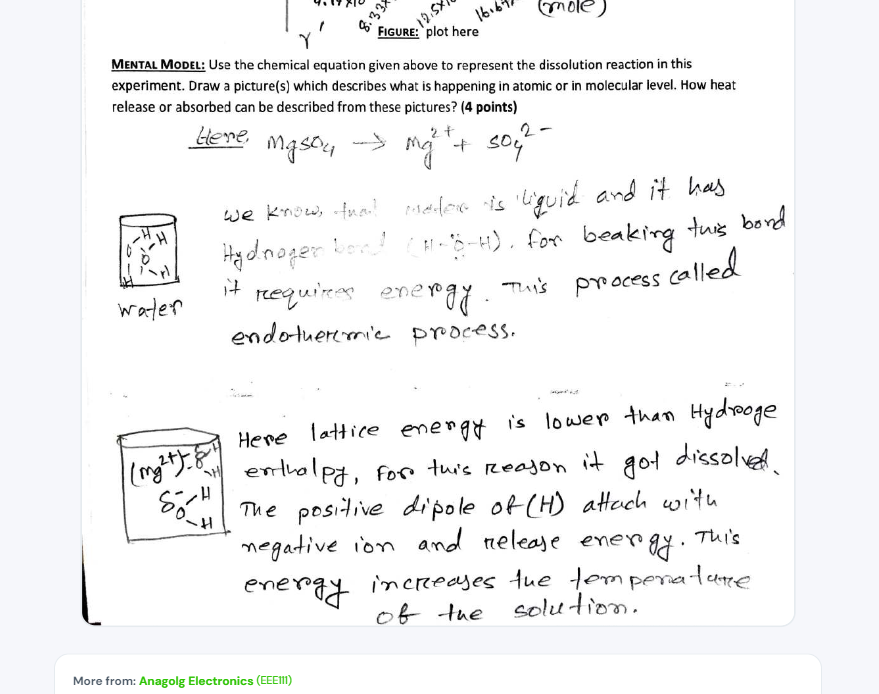 (mole)
FIGURE: plot here
MENTAL MODEL: Use the chemical equation given above to represent the dissolution reaction in this
experiment. Draw a picture(s) which describes what is happening in atomic or in molecular level. How heat
release or absorbed can be described from these pictures? (4 points)
Here, MgSO4 → Mg2+ + SO4 2-
we know, that water is liquid and it has
Hydnogen bond (H-Ö-H). for beaking this bond
it requires energy. This process called
endothermic process.
water
Here lattice energy is lower than Hydrooge
enthalpy, For this reason it got dissolved.
The positive dipole of (H) attach with
negative ion and release energy. This
energy increases the temperature
of the solution.
(mg2+)
More from: Anagolg Electronics (EEE111)